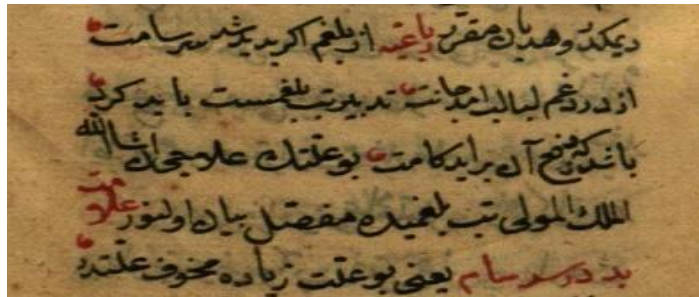 دیمکدر وهدیان مقرر رباعیه از بلغم اکر پدید شد سرسامت
از درد و غم لبالب آمد جانت تدبیر تب بلغمیست باید کرد
باشد که دفع آن براید کامت بو علتك علاجی ان شاالله
الملك المولی تب بلغمیده مفصل بیان اولنور علامت
بد در سرسام یعنی بو علت زیاده مخوف علتدر